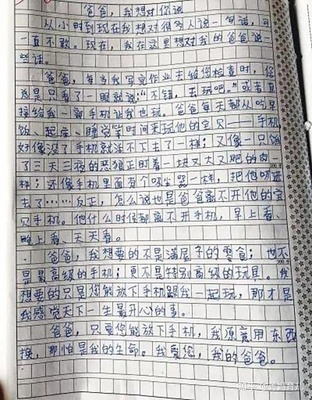 爸爸，我想对你说
从小时到现在我想对很多人说一句话，可
一直不敢。现在，我在这里想对我的爸爸说
些话。
爸爸，每当我写完作业去给您检查时，您
总是只看了一眼就说“不错，去玩吧。”或者直
接给我一副手机让我也玩。爸爸每天都从吃早
饭、起床、睡觉等时间是玩他的宝贝——手机
好像没了手机就活不下去了一样；又像一只饿
了三天三夜的恶狼正盯着一块又大又肥的肉一
样；还像手机里面有个吸尘器一样，把他吸进
去了……反正，怎么说也是爸爸离不开他的宝
贝手机。他什么时候都离不开手机，早上看、
晚上看、天天看。
爸爸，我想要的不是满屋子的零食；也不
是最高级的手机；更不是特别高级的玩具。我
想要的只是您能放下手机跟我一起玩，那才是
我感觉天下一生最开心的事。
爸爸，只要您能放下手机，我愿意用东西
换，那怕是我的生命。我爱您，我的爸爸。